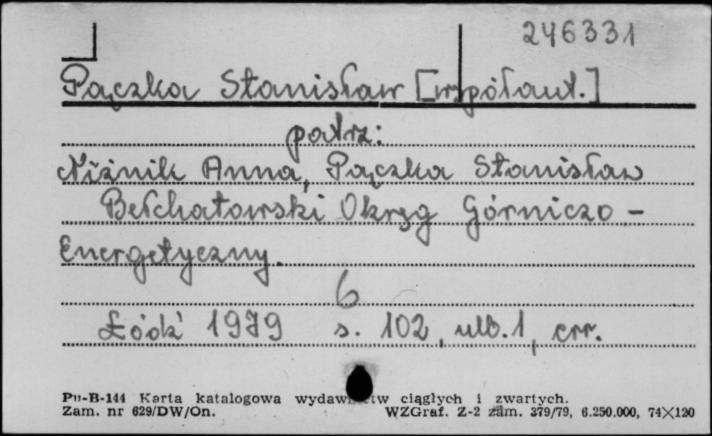 246331
Pączka Stanisław [współaut.]
patrz:
Niżnik Anna, Pączka Stanisław
Bełchatowski Okręg Górniczo -
Energetyczny.
6
Łódź 1979 s. 102, ulb. 1, err.
Pu-B-144 Karta katalogowa wydawnictw ciągłych i zwartych.
Zam. nr 629/DW/On. WZGraf. Z-2 zam. 379/79, 6.250.000, 74×120